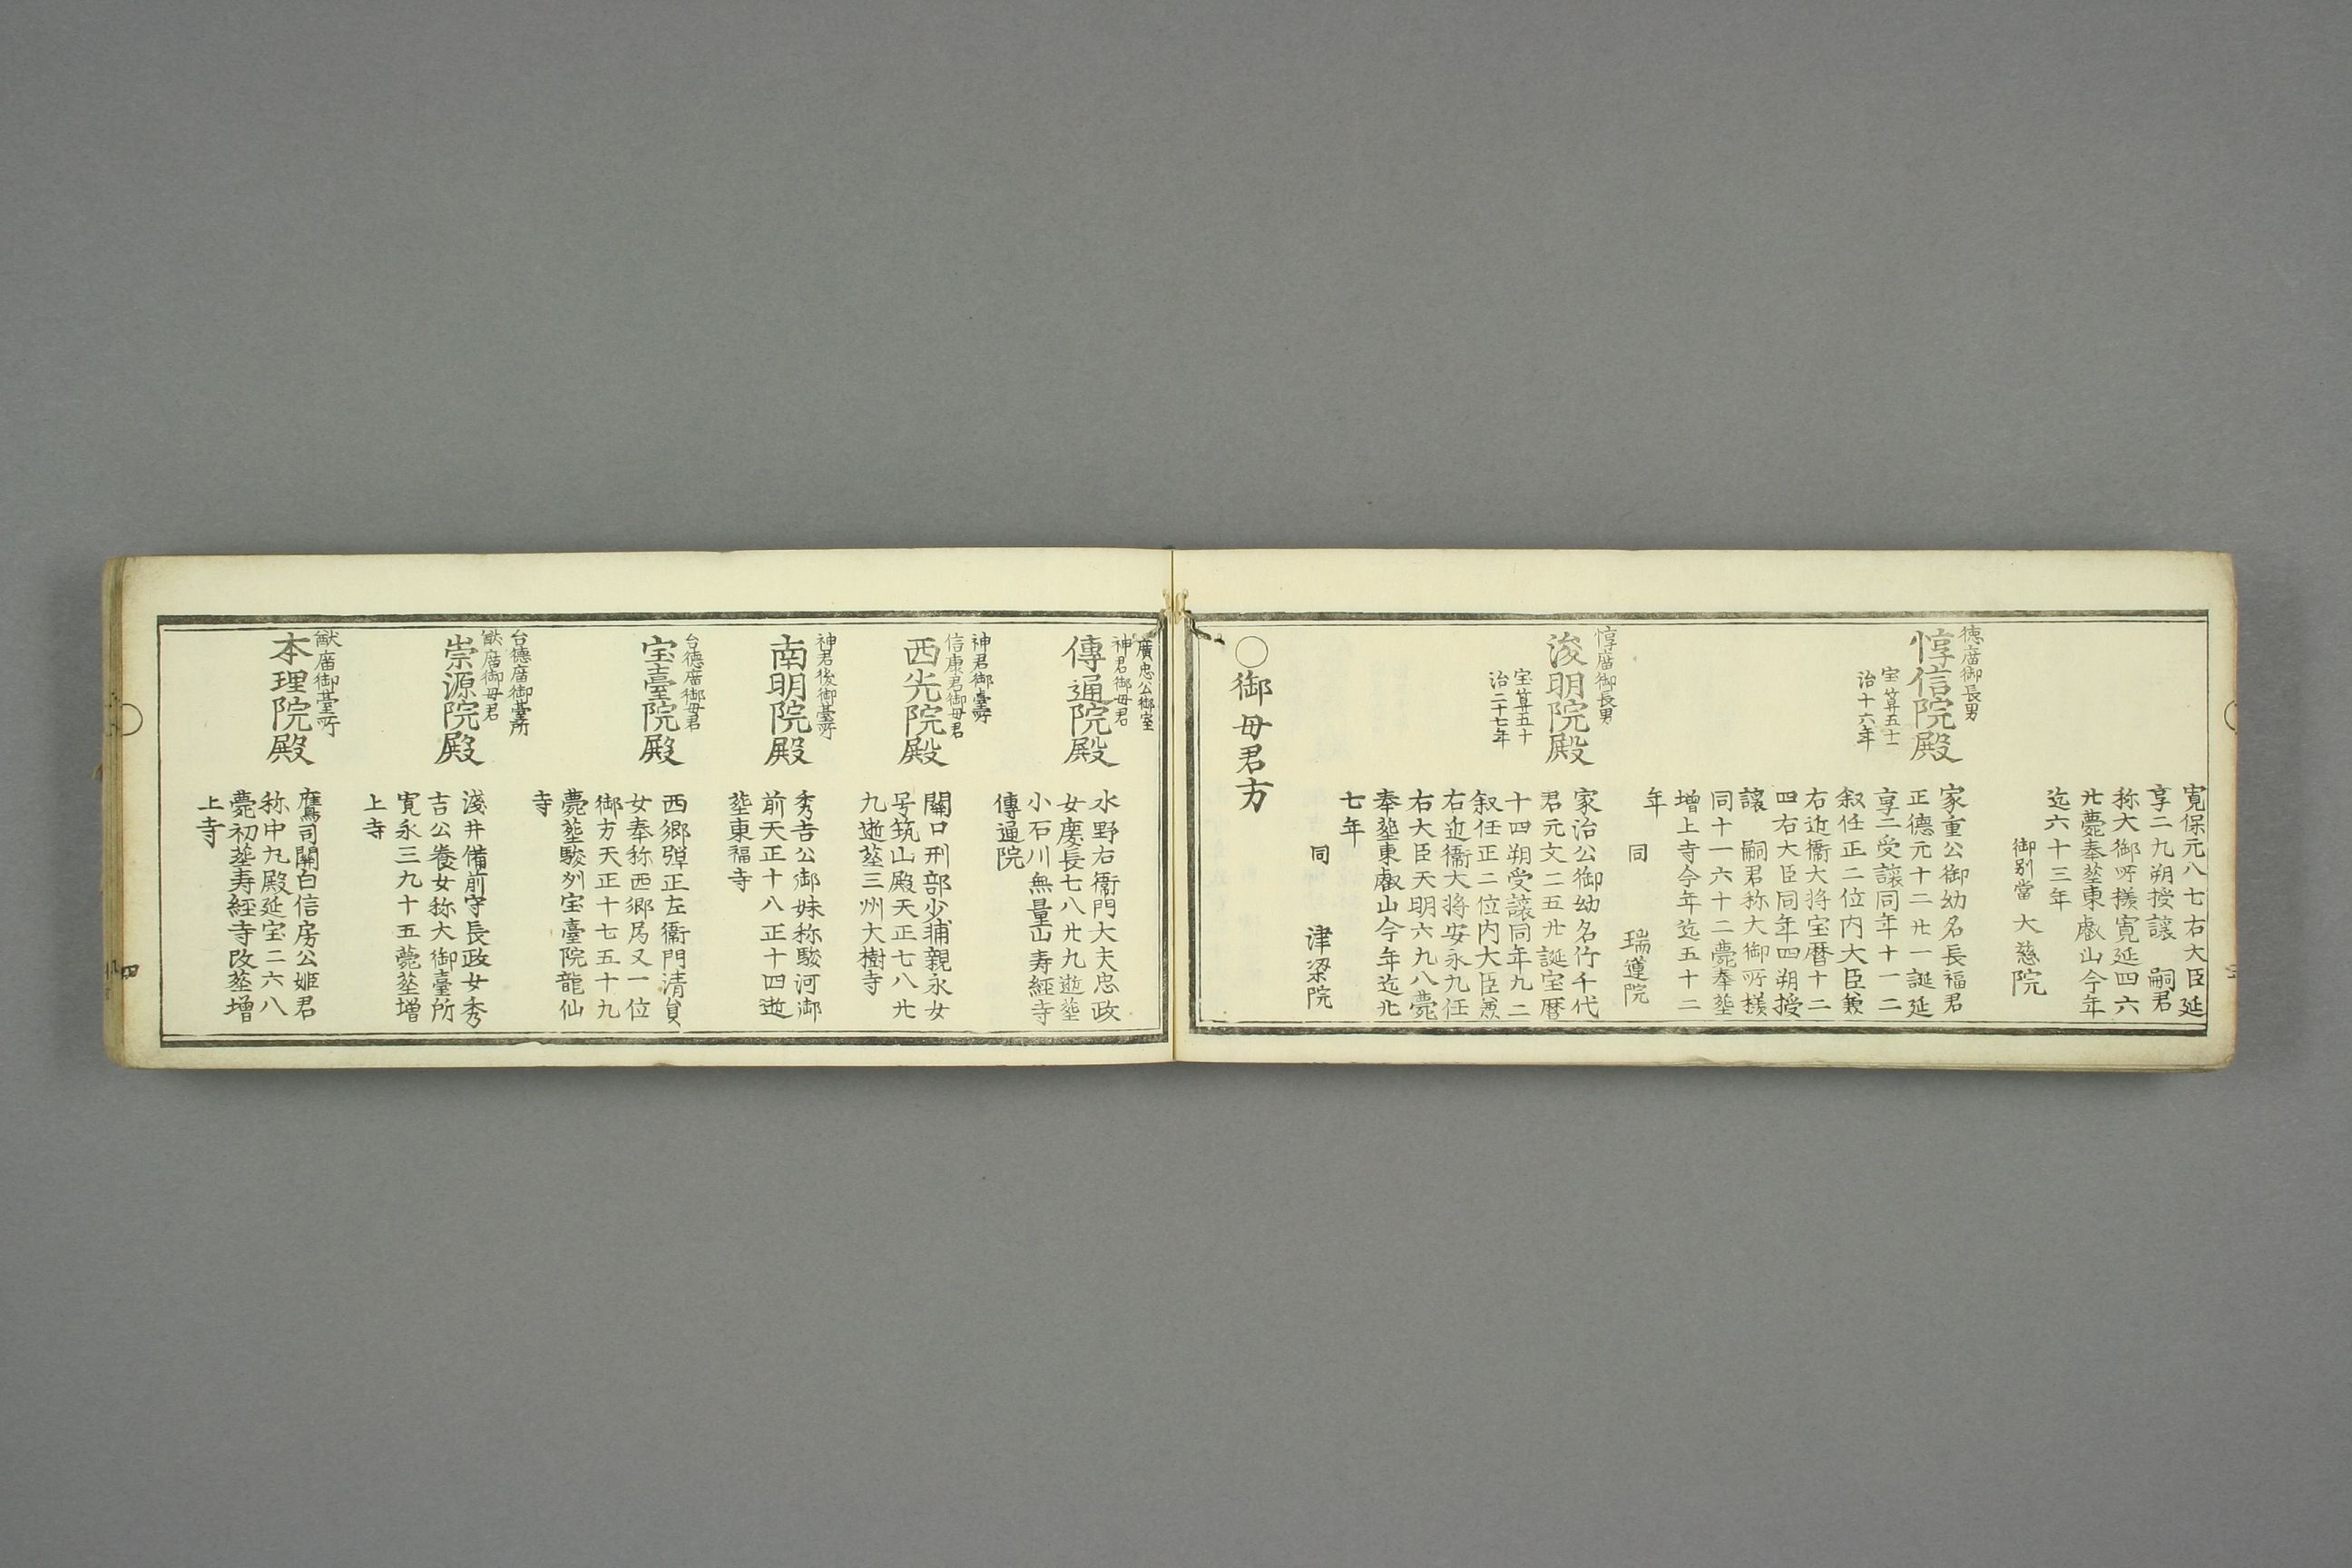 寛保元八七右大臣延
享二九朔授讓 嗣君
称大御所様寛延四六
廿薨奉葢東叡山今年
迄六十三年
御別當 大慈院
徳廟御長男
惇信院殿
宝算五十一
治十六年
家重公御幼名長福君
正德元十二廿一誕延
享二受讓同年十一二
叙任正二位内大臣兼
右近衞大将宝暦十二
四右大臣同年四朔授
讓 嗣君称大御所様
同十一六十二薨奉葢
增上寺今年迄五十二
年
同 瑞蓮院
惇廟御長男
浚明院殿
宝算五十
治二十七年
家治公御幼名竹千代
君元文二五廿誕宝暦
十四朔受讓同年九二
叙任正二位内大臣兼
右近衞大将安永九任
右大臣天明六九八薨
奉葢東叡山今年迄廿
七年
同 津梁院
〇御母君方
廣忠公御室
神君御母君
傳通院殿
水野右衞門大夫忠政
女慶長七八廿九逝葢
小石川無量山寿經寺
傳通院
神君御臺所
信康君御母君
西光院殿
關口刑部少浦親永女
号筑山殿天正七八廿
九逝葢三州大樹寺
神君後御臺所
南明院殿
秀吉公御妹称駿河御
前天正十八正十四逝
葢東福寺
台徳廟御母君
宝臺院殿
西郷彈正左衞門清貟
女奉称西郷局又一位
御方天正十七五十九
薨葢駿刕宝臺院龍仙
寺
台德廟御臺所
猷廟御母君
崇源院殿
淺井備前守長政女秀
吉公養女称大御臺所
寛永三九十五薨葢增
上寺
猷廟御臺所
本理院殿
鷹司關白信房公姫君
称中丸殿延宝二六八
薨初葢寿経寺改葢增
上寺
四